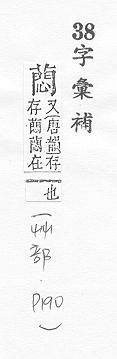 38
字彙補
又唐韻存
存在
也
(艸部．P190)